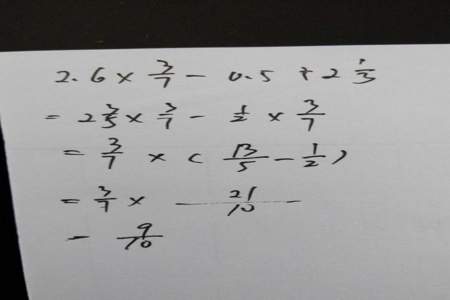 2.6 × 3/7 − 0.5 ÷ 2 1/3
= 2 3/5 × 3/7 − 1/2 × 3/7
= 3/7 × ( 13/5 − 1/2 )
= 3/7 × 21/10
= 9/10